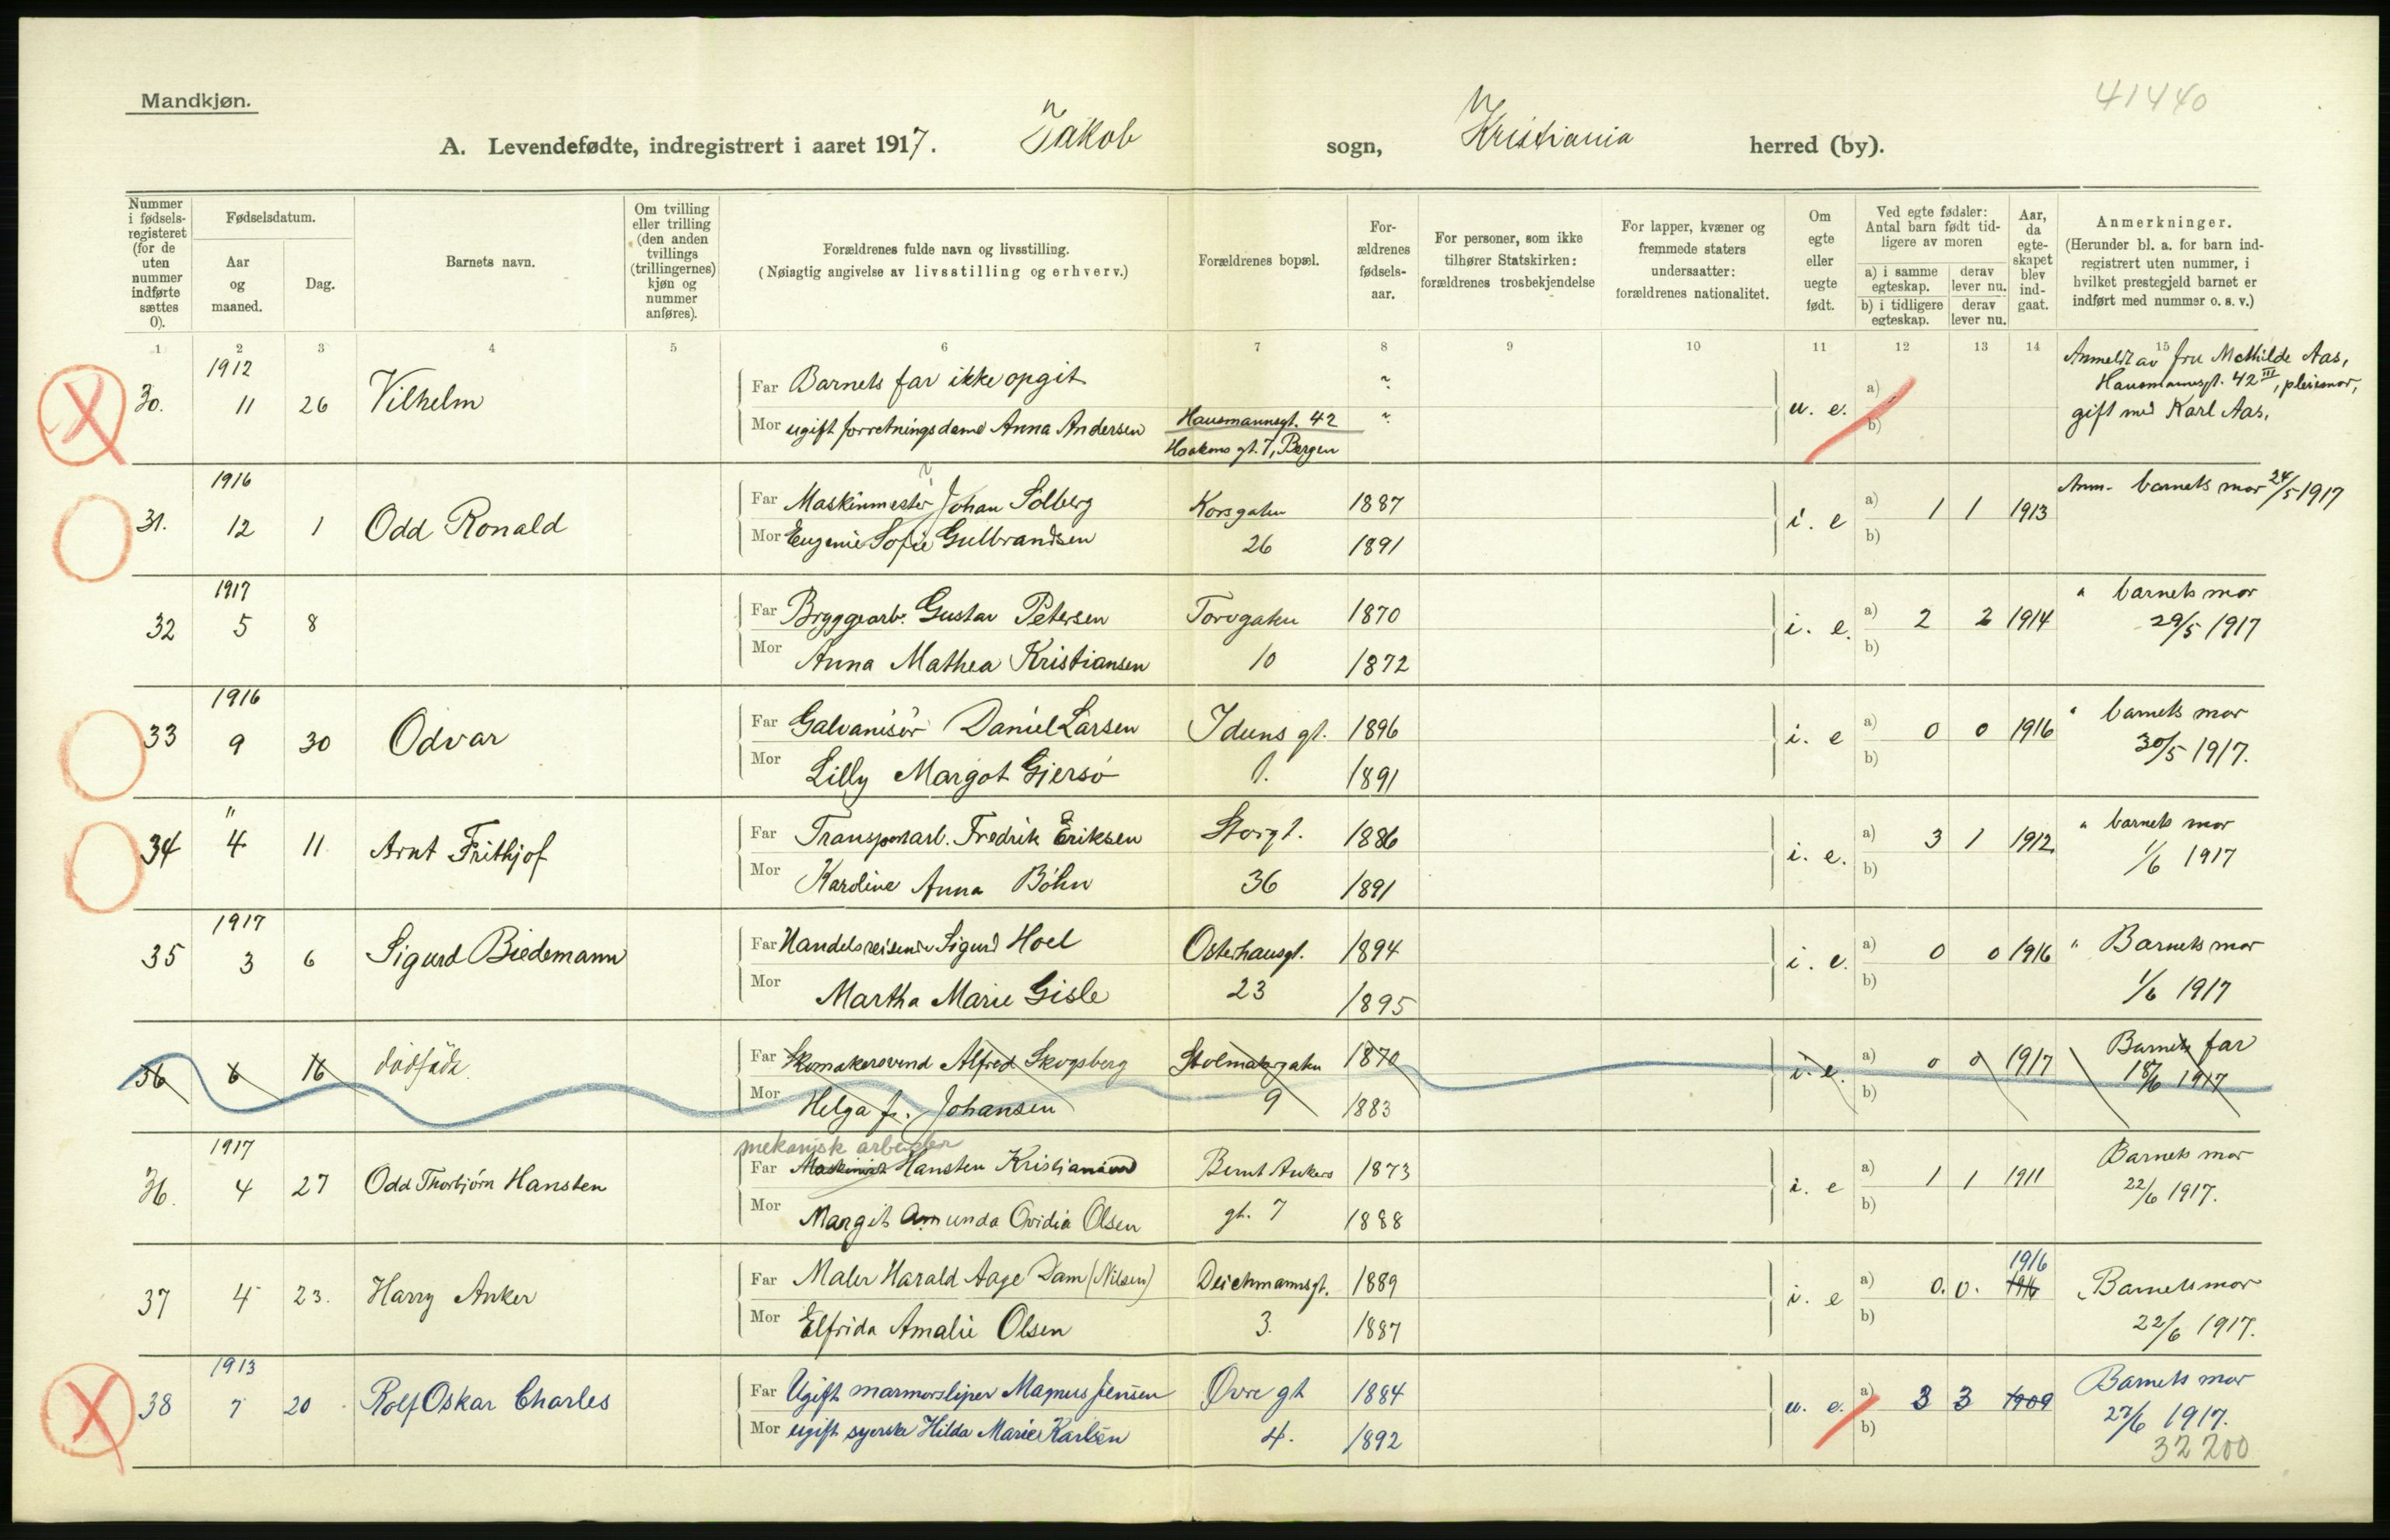 Mandkjøn.
41440
A. Levendefødte, indregistrert i aaret 1917. Jakob sogn, Kristiania herred (by).
Nummer i fødsels-registeret (for de uten nummer indførte sættes 0).
Fødselsdatum.
Aar og maaned.
Dag.
Barnets navn.
Om tvilling eller trilling (den anden tvillings (trillingernes) kjøn og nummer anføres).
Forældrenes fulde navn og livsstilling.
(Nøiagtig angivelse av livsstilling og erhverv.)
Forældrenes bopæl.
For-ældrenes fødsels-aar.
For personer, som ikke tilhører Statskirken: forældrenes trosbekjendelse
For lapper, kvæner og fremmede staters undersaatter: forældrenes nationalitet.
Om egte eller uegte født.
Ved egte fødsler: Antal barn født tid-ligere av moren
a) i samme egteskap.
derav lever nu.
b) i tidligere egteskap.
derav lever nu.
Aar, da egte-skapet blev ind-gaat.
Anmerkninger.
(Herunder bl. a. for barn ind-registrert uten nummer, i hvilket prestegjeld barnet er indført med nummer o. s. v.)
1 2 3 4 5 6 7 8 9 10 11 12 13 14 15
1912
30. 11 26 Vilhelm
Far Barnets far ikke opgit ?
Mor ugift forretningsdame Anna Andersen Hausmannsgt. 42 ?
Haakons gt. 7, Bergen
u. e. a) b)
Anmeldt av fru Mathilde Aas,
Hausmannsgt. 42 III, pleiemor,
gift med Karl Aas.
1916
31. 12 1 Odd Ronald
Far Maskinmester Johan Solberg Korsgaten 1887
Mor Eugenie Sofie Gulbrandsen 26 1891
i. e a) 1 1 1913
b)
Anm. barnets mor 24/5 1917
1917
32 5 8
Far Bryggearb. Gustav Petersen Torvgaten 1870
Mor Anna Mathea Kristiansen 10 1872
i. e. a) 2 2 1914
b)
" barnets mor
29/5 1917
1916
33 9 30 Odvar
Far Galvanisør Daniel Larsen Iduns gt. 1896
Mor Lilly Margot Gjersø 1. 1891
i. e a) 0 0 1916
b)
" barnets mor
30/5 1917.
"
34 4 11 Arnt Frithjof
Far Transportarb. Fredrik Eriksen Storgt. 1886
Mor Karoline Anna Bøhn 36 1891
i. e. a) 3 1 1912
b)
" barnets mor
1/6 1917
1917
35 3 6 Sigurd Biedemann
Far Handelsreisende Sigurd Hoel Osterhausgt. 1894
Mor Martha Marie Gisle 23 1895
i. e. a) 0 0 1916
b)
" Barnets mor
1/6 1917
36 6 16 dødfødt
Far Skomakersvend Alfred Skogsberg Stolmakergaten 1870
Mor Helga f. Johansen 9 1883
i. e. a) 0 0 1917
b)
Barnets far
18/6 1917
1917
mekanisk arbeider
36. 4 27 Odd Thorbjørn Hansten
Far Maskinist Hansten Kristiansen Bernt Ankers 1873
Mor Margit Amunda Ovidia Olsen gt. 7 1888
i. e a) 1 1 1911
b)
Barnets mor
22/6 1917.
37 4 23. Harry Anker
Far Maler Harald Aage Dam (Nilsen) Deichmannsgt. 1889
Mor Elfrida Amalie Olsen 3. 1887
i. e a) 0. 0. 1916
b)
Barnets mor
22/6 1917.
1913
38 7 20 Rolf Oskar Charles
Far Ugift marmorsliper Magnus Jensen Øvre gt 1884
Mor ugift syerske Hilda Marie Karlsen 4. 1892
u. e. a) 3 3 1909
b)
Barnets mor
27/6 1917.
32200